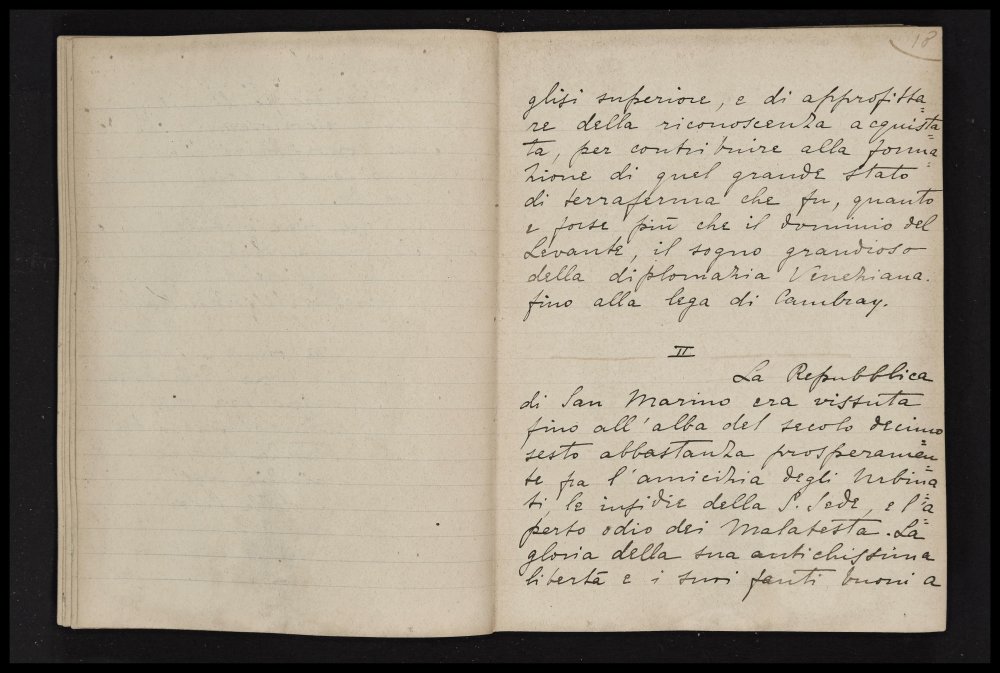 18
glisi superiore, e di approfitta=
re della riconoscenza acquista=
ta, per contribuire alla forma=
zione di quel grande stato
di terraferma che fu, quanto
e forse più che il dominio del
Levante, il sogno grandioso
della diplomazia Veneziana.
fino alla lega di Cambray.
II
La Repubblica
di San Marino era vissuta
fino all'alba del secolo decimo
sesto abbastanza prosperamen=
te fra l'amicizia degli Urbina=
ti, le insidie della S. Sede, e l'a=
perto odio dei Malatesta. La
gloria della sua antichissima
libertà e i suoi fanti buoni a